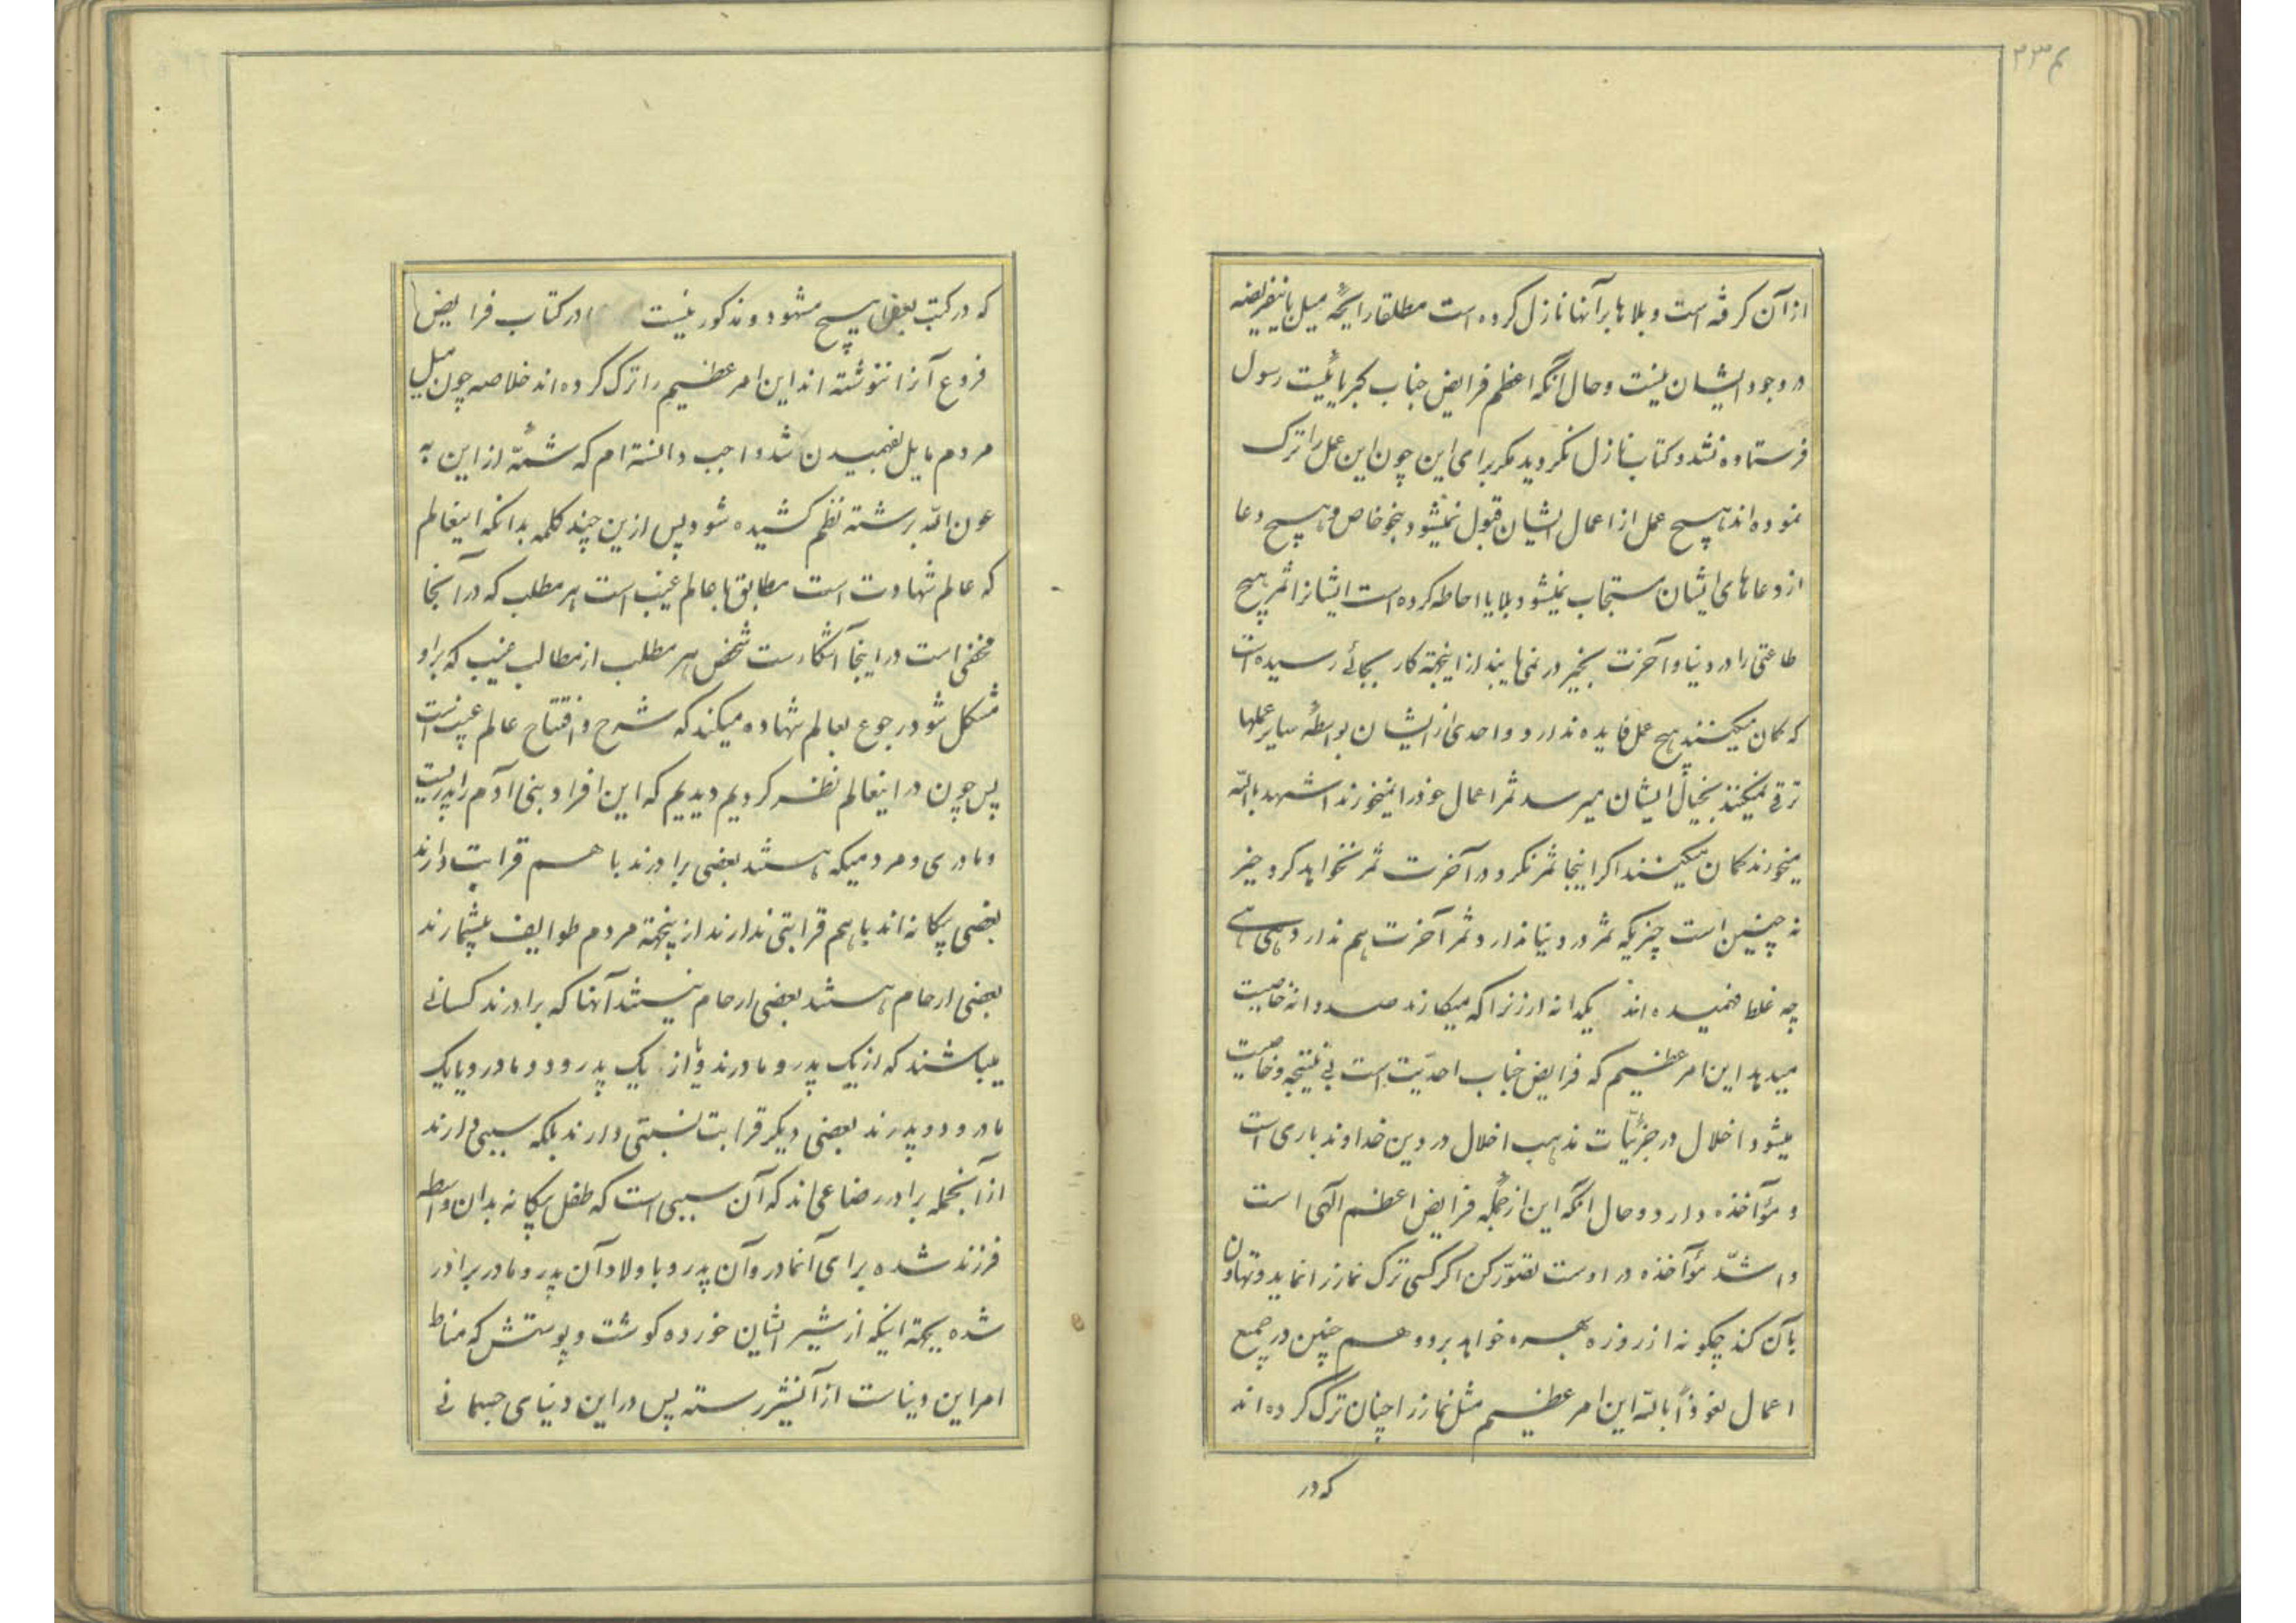 ۲۳۴
از آن گرفته است و بلاها بر آنها نازل کرده است مطلقا رایحه میل باینفریضه
در وجود ایشان نیست و حال آنکه اعظم فرایض جناب کبریائیست رسول
فرستاده نشد و کتاب نازل نگردید مگر برای این چون این عمل را ترک
نموده اند هیچ عمل از اعمال ایشان قبول نمیشود بنحو خاص و هیچ دعا
از دعاهای ایشان مستجاب نمیشود بلایا احاطه کرده است ایشانرا ثمر هیچ
طاعتی را در دنیا و آخرت بخیر در نمی یابند از اینجهة کار بجائے رسیده است
که گمان میکنند هیچ عمل فایده ندارد و احدی از ایشان بواسطهٔ سایر عملها
ترقے نمیکند بخیال ایشان میرسد ثمر اعمال خود را نمیخورند اشهد بالله
میخورند گمان میکنند اگر اینجا ثمر نکرد در آخرت ثمر خواهد کرد خیر
نه چنین است چیزیکه ثمر در دنیا ندارد ثمر آخرت هم ندارد هی هے
چه غلط فهمیده اند یکدانه ارزنرا که میکارند صد دانه خاصیت
میدهد این امر عظیم که فرایض جناب احدیّت است بی نتیجه و خاصیت
میشود اخلال در جزئیّات مذهب اخلال در دین خداوند باری است
و مؤآخذه دارد و حال آنکه این از جملهٔ فرایض اعظم الهی است
و اشدّ مؤآخذه در اوست تصوّر کن اگر کسی ترک نماز را نماید و تهاون
بآن کند چگونه از روزه بهره خواهد برد و هم چنین در جمیع
اعمال نعوذاً بالله این امر عظیم مثل نماز را چنان ترک کرده اند
که در
که در کتب بعض هیچ مشهود و مذکور نیست در کتاب فرایض
فروع آنرا ننوشته اند این امر عظیم را ترک کرده اند خلاصه چون میل
مردم مایل بفهمیدن شد واجب دانسته ام که شمّهٔ از این به
عون الله برشته نظم کشیده شود پس ازین چند کلمه بدانکه اینعالم
که عالم شهادت است مطابق با عالم غیب است هر مطلب که در آنجا
مخفی است در اینجا آشکار است شخص هر مطلب از مطالب غیب که براو
مشکل شود رجوع بعالم شهاده میکند که شرح و افتتاح عالم غیب است
پس چون در اینعالم نظر کردیم دیدیم که این افراد بنی آدم را پدریست
و مادری و مردمیکه هستند بعضی برادرند با هم قرابت دارند
بعضی بیگانه اند با هم قرابتی ندارند از ینجهة مردم طوایف بیشمارند
بعضی ارحام هستند بعضی ارحام نیستند آنها که برادرند کسانے
میباشند که از یک پدر و مادرند و یا از یک پدر و دو مادر و یا یک
مادر و دو پدرند بعضی دیگر قرابت نسبتی دارند بلکه سببی دارند
از آنجمله برادر رضاعی اند که آن سببی است که طفل بیگانه بدان واسطه
فرزند شده برای آنمادر و آن پدر و با ولاد آن پدر و مادر برادر
شده بجهة اینکه از شیر ایشان خورده گوشت و پوستش که مناط
امر این دنیاست از آنشیر رسته پس در این دنیای جسمانے